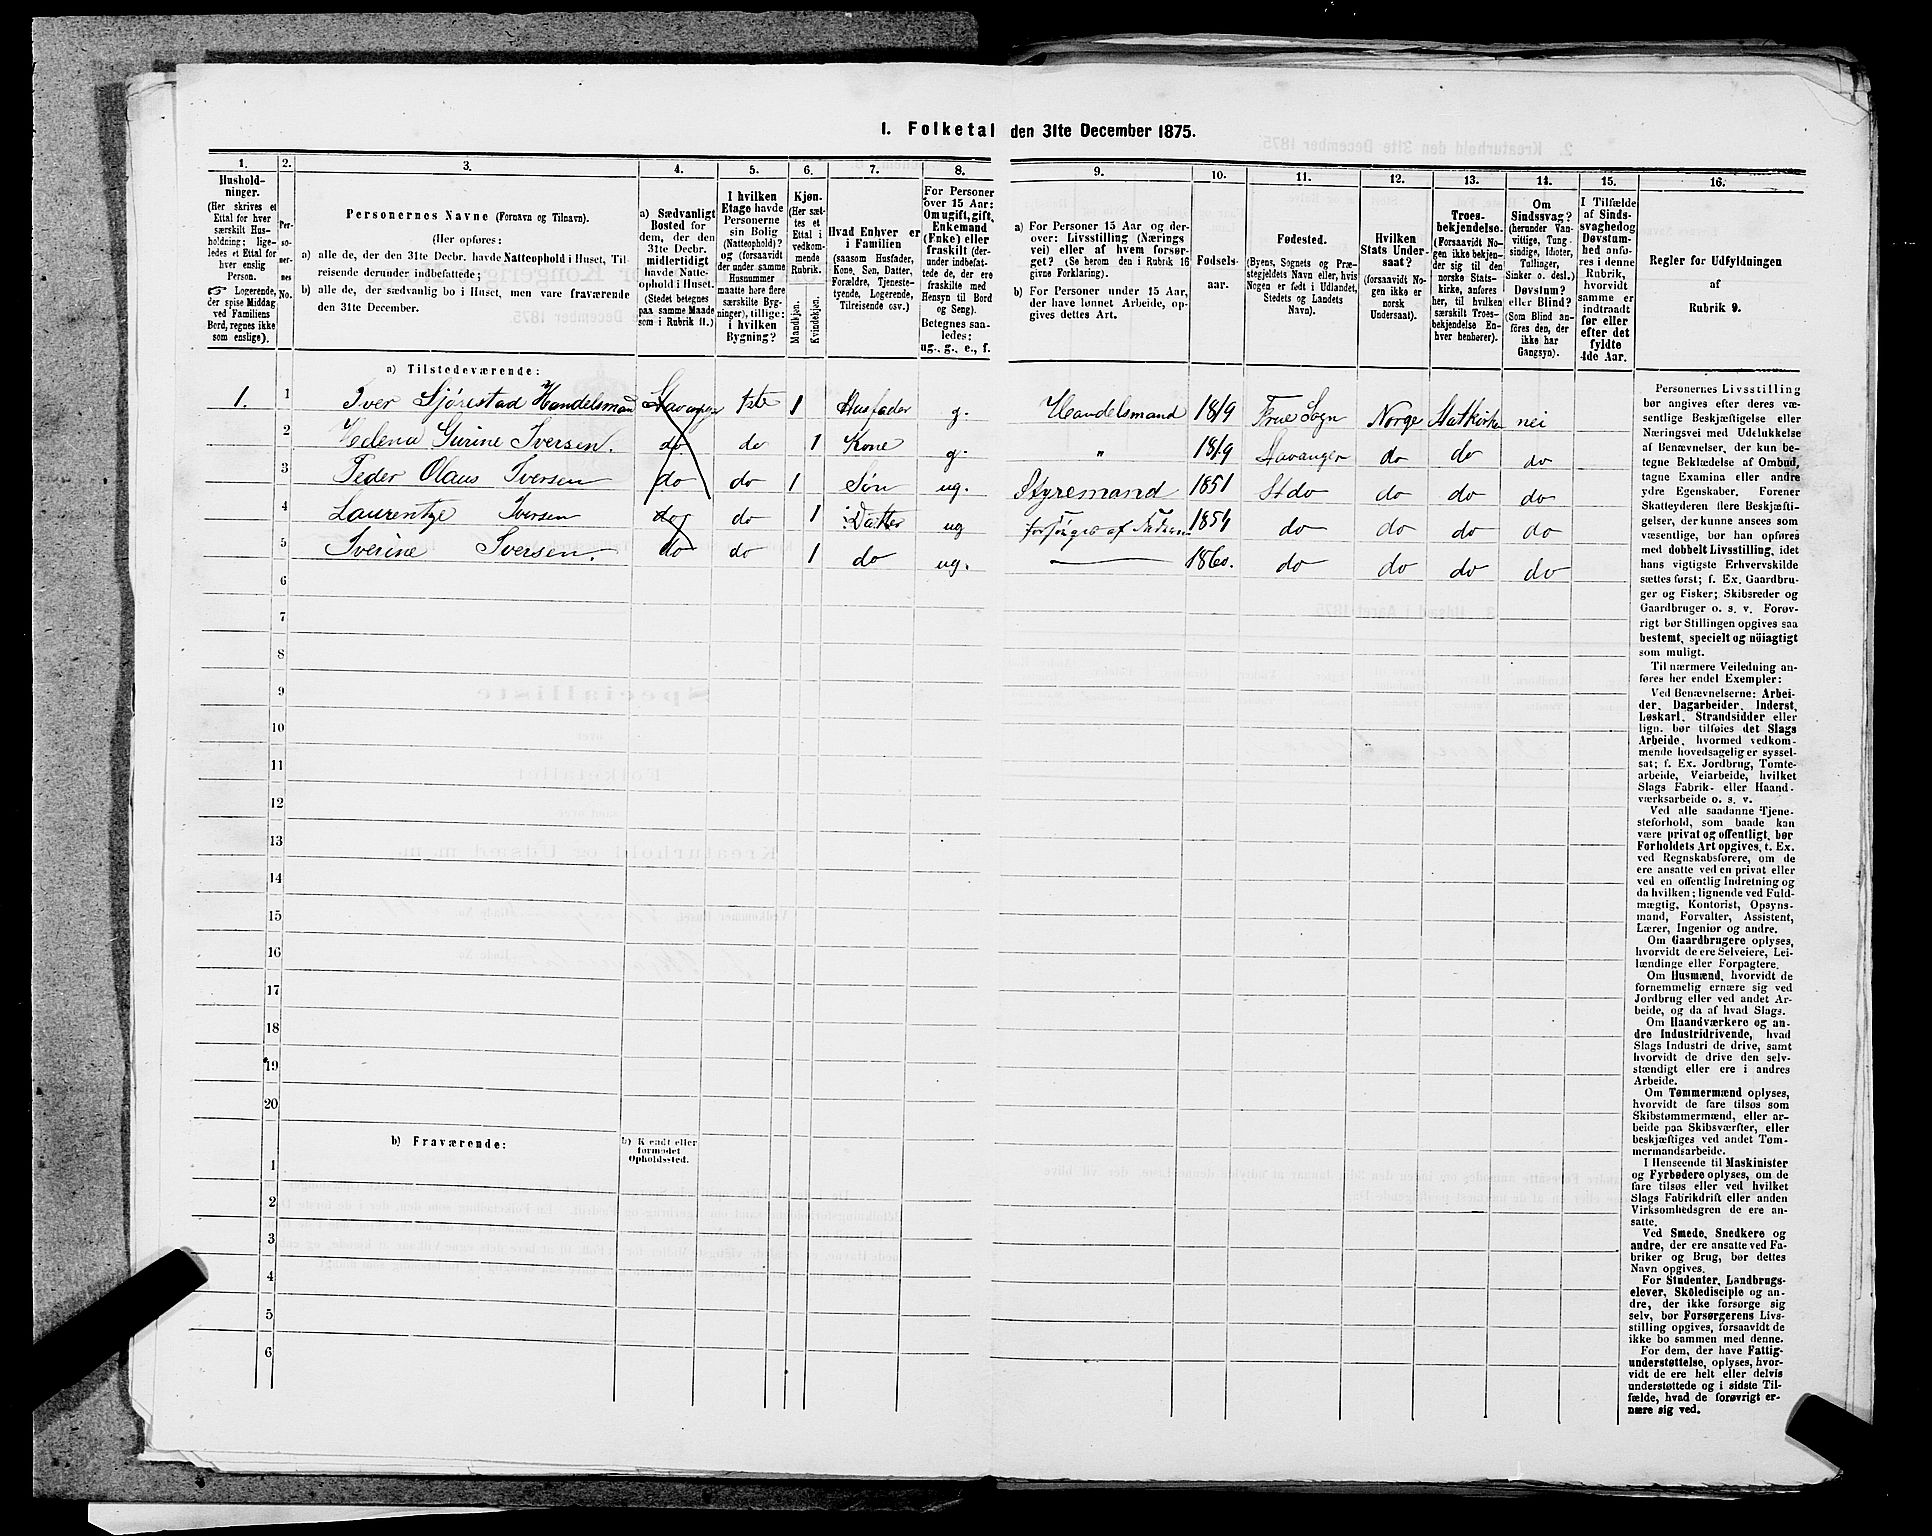 I. Folketal den 31te December 1875.
1.
Husholdninger.
(Her skrives et
Ettal for hver
særskilt Husholdning; ligeledes
et Ettal for
hver enslig
Person.
☞ Logerende,
der spise Middag
ved Familiens
Bord, regnes ikke
som enslige).
2.
Personernes
No.
3.
Personernes Navne (Fornavn og Tilnavn).
(Her opføres:
a) alle de, der den 31te Decbr. havde Natteophold i Huset, Tilreisende
derunder indbefattede;
b) alle de, der sædvanlig bo i Huset, men vare fraværende
den 31te December.
4.
a) Sædvanligt
Bosted for
dem, der den
31te Decbr.
midlertidigt
havde Natteophold
i Huset.
(Stedet betegnes
paa samme Maade
som i Rubrik 11.)
5.
I hvilken
Etage havde
Personerne
sin Bolig
(Natteophold)?
og (forsaavidt
der under samme
Husnummer
maatte høre flere
særskilte Bygninger),
tillige:
i hvilken
Bygning?
6.
Kjøn.
(Her sættes
et
Ettal i
vedkommende
Rubrik.
Mandkjøn.
Kvindekjøn.
7.
Hvad Enhver er
i Familien
(saasom Husfader,
Kone, Søn, Datter,
Forældre, Tjenestetyende,
Logerende,
Tilreisende osv.)
8.
For Personer
over 15 Aar:
Om ugift, gift,
Enkemand
(Enke) eller
fraskilt (derunder
indbefattede
de, der ere
fraskilte med
Hensyn til Bord
og Seng).
Betegnes saaledes:
ug., g., e., f.
9.
a) For Personer 15 Aar og derover:
Livsstilling (Næringsvei)
eller af hvem forsørget?
(Se herom den i Rubrik 16
givne Forklaring).
b) For Personer under 15 Aar,
der have lønnet Arbeide, opgives
dettes Art.
10.
Fødselsaar.
11.
Fødested.
(Byens, Sognets og Præstegjeldets
Navn eller, hvis
Nogen er født i Udlandet,
Stedets og Landets
Navn).
12.
Hvilken
Stats Undersaat?
(forsaavidt Nogen
ikke er
norsk
Undersaat).
13.
Troesbekjendelse.
(Forsaavidt Nogen
ikke bekjender
sig til den
norske Statskirke,
anføres
her, til hvilken
særskilt Troesbekjendelse
Enhver
henhører).
14.
Om
Sindssvag?
(herunder Vanvittige,
Tungsindige,
Idioter,
Tullinger,
Sinker o. desl.)
Døvstum?
eller Blind?
(Som Blind anføres
den, der
ikke har
Gangsyn).
15.
I Tilfælde
af Sindssvaghed
og
Døvstumhed
anføres
i denne
Rubrik,
hvorvidt
samme er
indtraadt
før eller
efter det
fyldte
4de Aar.
16.
Regler for Udfyldningen
af
Rubrik 9.
a) Tilstedeværende:
1. 1 Iver Sjørestad Handelsmand Stavanger 1ste 1 Husfader g. Handelsmand 1819 Frue Sogn Norge Statkirken nei
2 Helena Gurine Iversen. do do 1 Kone g. " 1819 Stavanger do do do
3 Peder Olaus Iversen do do 1 Søn ug. Styremand 1851 St do do do do
4 Laurentze Iversen do do 1 Datter ug forsørges af Faderen 1854 do do do do
5 Iverine Iversen. do do 1 do ug. 1860. do do do do
6
7
8
9
10
11
12
13
14
15
16
17
18
19
20
b) Fraværende:
b) Kjendt eller
formodet
Opholdssted.
1
2
3
4
5
6
Personernes Livsstilling
bør angives efter deres væsentlige
Beskjæftigelse eller
Næringsvei med Udelukkelse
af Benævnelser, der kun betegne
Beklædelse af Ombud,
tagne Examina eller andre
ydre Egenskaber. Forener
Skatteyderen flere Beskjæftigelser,
der kunne ansees som
væsentlige, bør han opføres
med dobbelt Livsstilling, idet
hans vigtigste Erhvervskilde
sættes først; f. Ex. Gaardbruger
og Fisker; Skibsreder og
Gaardbruger o. s. v. Forøvrigt
bør Stillingen opgives saa
bestemt, specielt og nöiagtigt
som muligt.
Til nærmere Veiledning anføres
her endel Exempler:
Ved Benævnelserne: Arbeider,
Dagarbeider, Inderst,
Løskarl, Strandsidder eller
lign. bør tilføies det Slags
Arbeide, hvormed vedkommende
hovedsagelig er sysselsat;
f. Ex. Jordbrug, Tomtearbeide,
Veiarbeide, hvilket
Slags Fabrik- eller Haandværksarbeide
o. s. v.
Ved alle saadanne Tjenesteforhold,
som baade kan
være privat og offentligt, bør
Forholdets Art opgives, t. Ex.
ved Regnskabsførere, om de
ere ansatte ved en privat eller
ved en offentlig Indretning og
da hvilken; lignende ved Fuldmægtig,
Kontorist, Opsynsmand,
Forvalter, Assistent,
Lærer, Ingeniør og andre.
Om Gaardbrugere oplyses,
hvorvidt de ere Selveiere, Leilændinge
eller Forpagtere.
Om Husmænd, hvorvidt de
fornemmelig ernære sig ved
Jordbrug eller ved andet Arbeide,
og da af hvad Slags.
Om Haandværkere og andre
Industridrivende, hvad
Slags Industri de drive, samt
hvorvidt de drive den selvstændigt
eller ere i andres
Arbeide.
Om Tømmermænd oplyses,
hvorvidt de fare tilsøs som
Skibstømmermænd, eller arbeide
paa Skibsværfter, eller
beskjæftiges ved andet Tømmermandsarbeide.
I Henseende til Maskinister
og Fyrbødere oplyses, om de
fare tilsøs eller ved hvilket
Slags Fabrikdrift eller anden
Virksomhedsgren de ere ansatte.
Ved Smede, Snedkere og
andre, der ere ansatte ved Fabriker
og Brug, bør dettes
Navn opgives.
For Studenter, Landbrugselever,
Skoledisciple og andre,
der ikke forsørge sig
selv, bør Forsørgerens Livsstilling
opgives, forsaavidt de
ikke bo sammen med denne.
For dem, der have Fattigunderstøttelse,
oplyses, hvorvidt
de ere helt eller delvis
understøttede og i sidste Tilfælde,
hvad de forøvrigt ernære
sig ved.